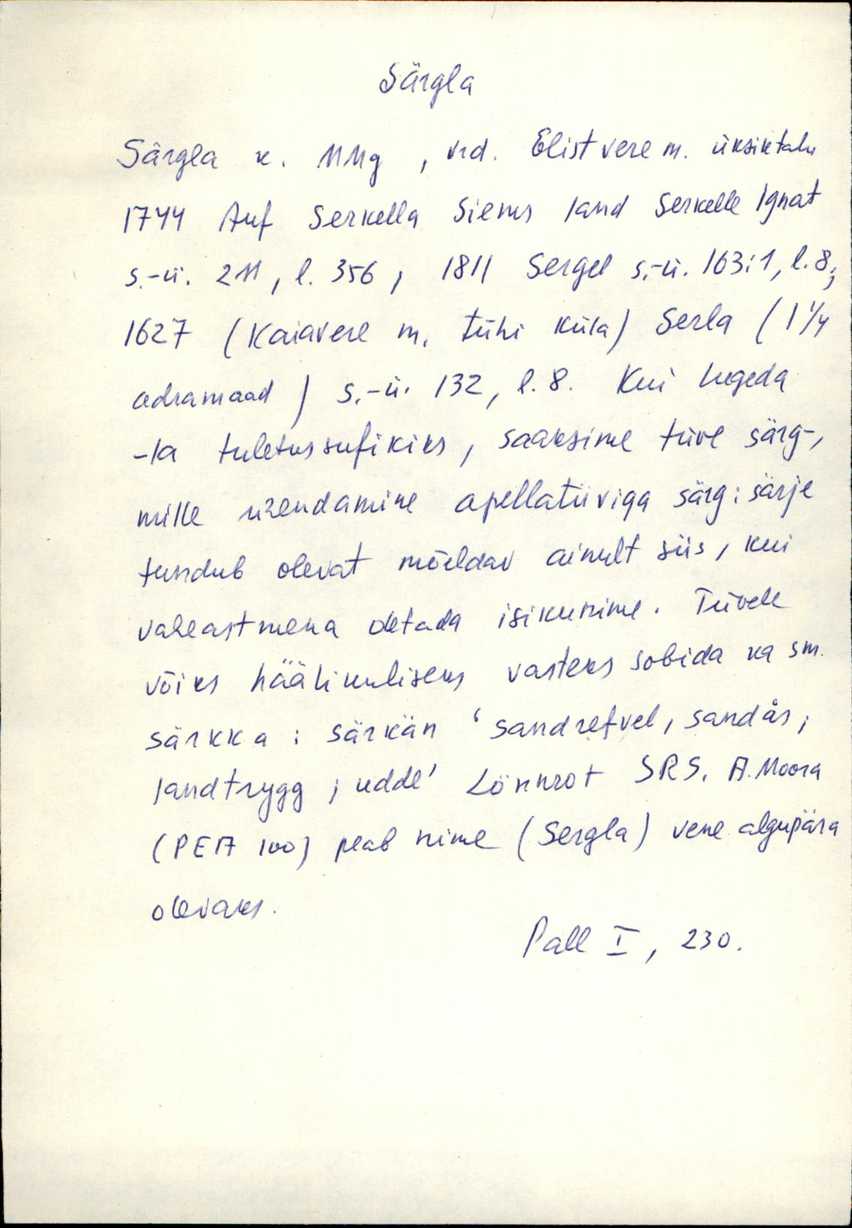 Särgla
Särgla k. MMg, vrd. Elistvere m. üksiktalu
1744 Auf Serkella Siems land Serkelle Ignat
s.-ü. 211, l. 356, 1811 Sergel s.-ü. 163:1, l. 8;
1627 (Kaiavere m. tühi küla) Serla (1 1/4
adramaad) s.-ü. 132, l. 8. Kui lugeda
-la tuletussufiksiks, saaksime tüve särg-,
mille ühendamine apellatiiviga särg : särje
tundub olevat mõeldav ainult siis, kui
vaheastmena oletada isikunime. Tüvele
võiks häälikuliseks vasteks sobida ka sm.
särkkä : särkän 'sandrefvel, sandås;
landtrygg; udde' Lönnrot SRS. A. Moora
(PEA 100) peab nime (Sergla) vene algupära
olevaks.
Pall I, 230.